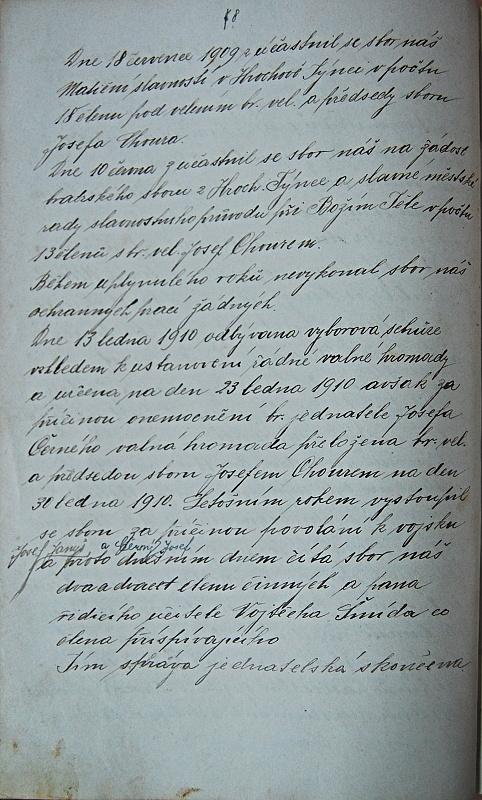 18
Dne 18 července 1909 zúčastnil se sbor náš
Matiční slavnosti v Hrochově Týnci v počtu
18 členu pod velením br. vel. a předsedy sboru
Josefa Choura.
Dne 10 června zúčastnil se sbor náš na žádost
bratrského sboru z Hroch. Týnce a slavné městské
rady slavnostního průvodu při Božím Těle v počtu
13 členů s br. vel. Josef Chourem.
Během uplynulého roků nevykonal sbor náš
ochranných prací žádných.
Dne 13 ledna 1910 odbyvana vyborová schůze
vzhledem k ustanovení řádné valné hromady
a určena na den 23 ledna 1910 avšak za
příčinou onemocnění br. jednatele Josefa
Černého valna hromada přeložena br. vel.
a předsedou sboru Josefem Chourem na den
30 ledna 1910. Letošním rokem vystoupil
se sboru za příčinou povolání k vojsku
Josef Janys a Černý Josef
a proto dnešním dnem čítá sbor náš
dvaadvacet členu činných a pana
řidicího učitele Vojtěcha Šmída co
člena přispívajícího
Tím správa jednatelská skončena.